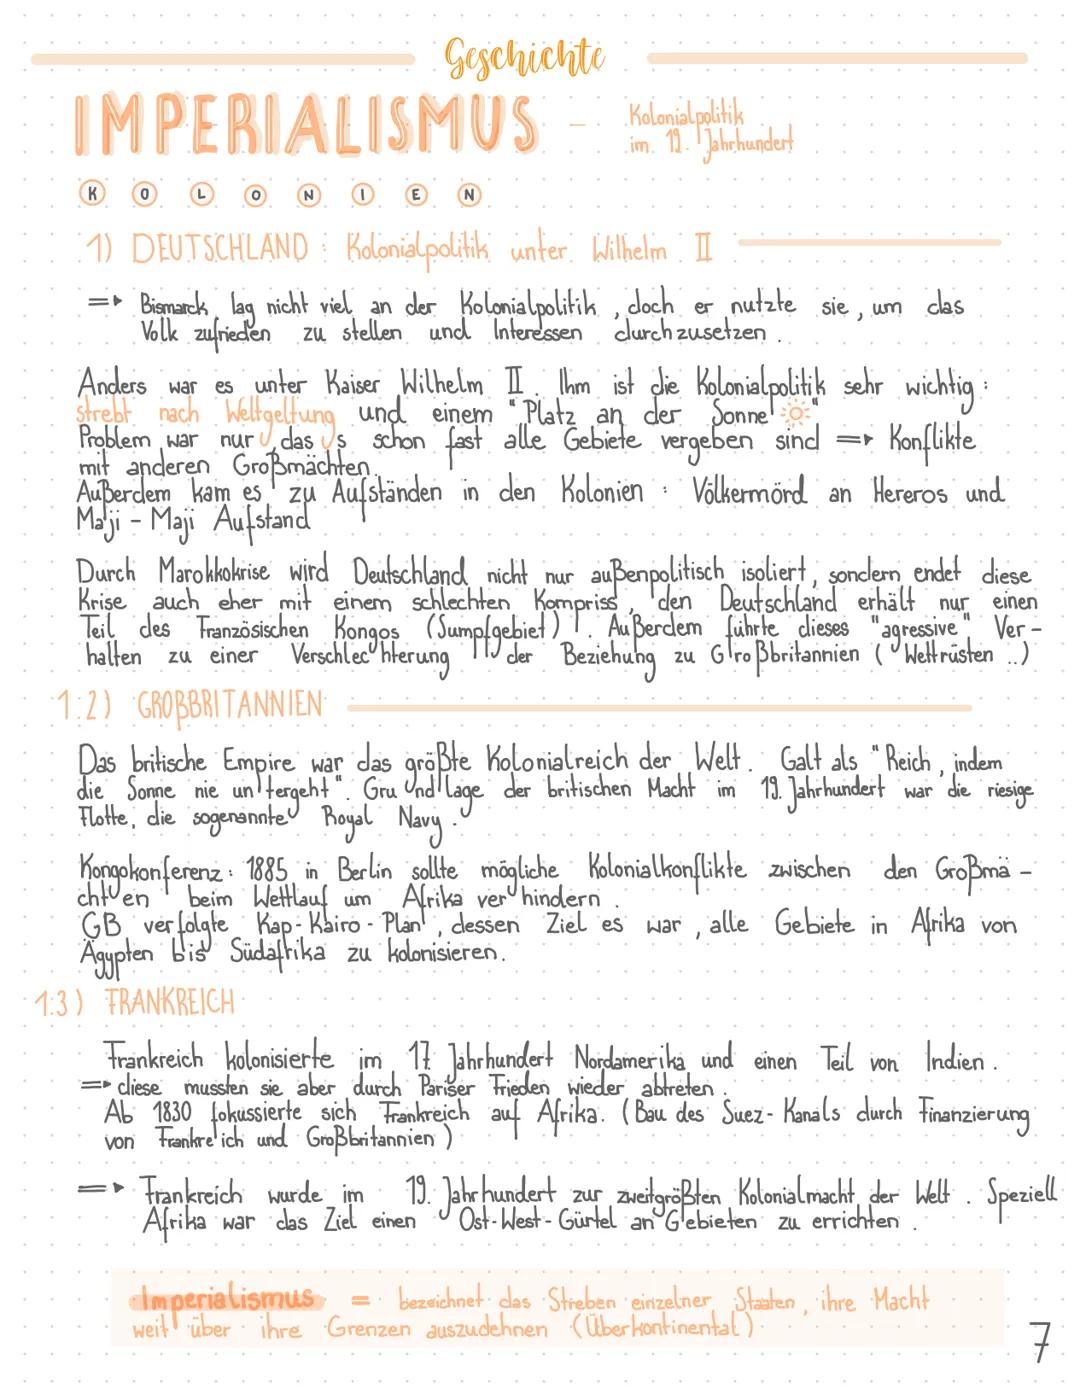 Geschichte
IMPERIALISMUS - Kolonialpolitik
im 19. Jahrhundert
K O L O N I E N
1) DEUTSCHLAND : Kolonialpolitik unter Wilhelm II
=> Bismarck lag nicht viel an der Kolonialpolitik , doch er nutzte sie , um das
Volk zufrieden zu stellen und Interessen durchzusetzen .
Anders war es unter Kaiser Wilhelm II. Ihm ist die Kolonialpolitik sehr wichtig :
strebt nach Weltgeltung und einem "Platz an der Sonne"
Problem war nur , das s schon fast alle Gebiete vergeben sind => Konflikte
mit anderen Großmächten.
Außerdem kam es zu Aufständen in den Kolonien : Völkermörd an Hereros und
Maji - Maji Aufstand
Durch Marokkokrise wird Deutschland nicht nur außenpolitisch isoliert , sondern endet diese
Krise auch eher mit einem schlechten Kompriss , den Deutschland erhält nur einen
Teil des Französischen Kongos (Sumpfgebiet) !. Außerdem führte dieses "agressive" Ver -
halten zu einer Verschlechterung der Beziehung zu Großbritannien ( Wettrüsten ..)
1.2) GROßBRITANNIEN
Das britische Empire war das größte Kolonialreich der Welt . Galt als "Reich , indem
die Sonne nie untergeht". Grundlage der britischen Macht im 19. Jahrhundert war die riesige
Flotte, die sogenannte Royal Navy .
Kongokonferenz : 1885 in Berlin sollte mögliche Kolonialkonflikte zwischen den Großmä -
chten beim Wettlauf um Afrika verhindern .
GB verfolgte Kap - Kairo - Plan , dessen Ziel es war , alle Gebiete in Afrika von
Ägypten bis Südafrika zu kolonisieren .
1.3) FRANKREICH
Frankreich kolonisierte im 17. Jahrhundert Nordamerika und einen Teil von Indien .
=> diese mussten sie aber durch Pariser Frieden wieder abtreten .
Ab 1830 fokussierte sich Frankreich auf Afrika. (Bau des Suez - Kanals durch Finanzierung
von Frankreich und Großbritannien )
=> Frankreich wurde im 19. Jahrhundert zur zweitgrößten Kolonialmacht der Welt . Speziell
Afrika war das Ziel einen Ost - West - Gürtel an Gebieten zu errichten .
Imperialismus = bezeichnet das Streben einzelner Staaten , ihre Macht
weit über ihre Grenzen auszudehnen (Überkontinental)
7